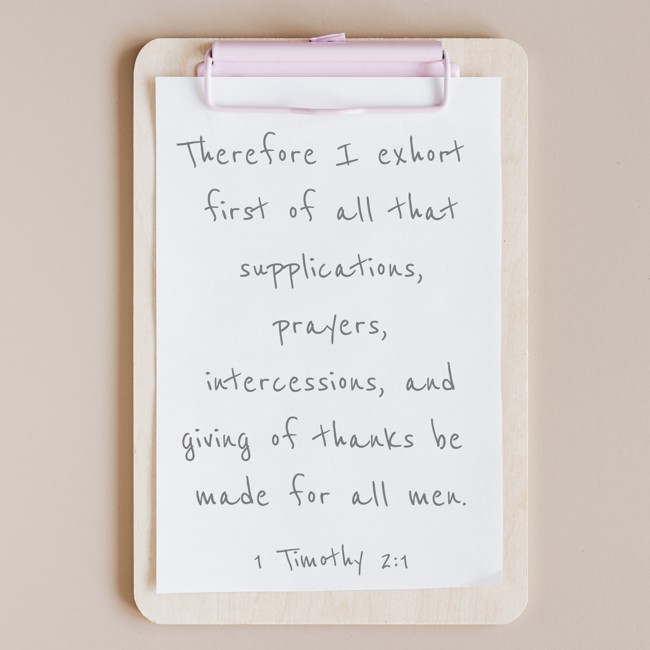 Therefore I exhort
first of all that
supplications,
prayers,
intercessions, and
giving of thanks be
made for all men.
1 Timothy 2:1